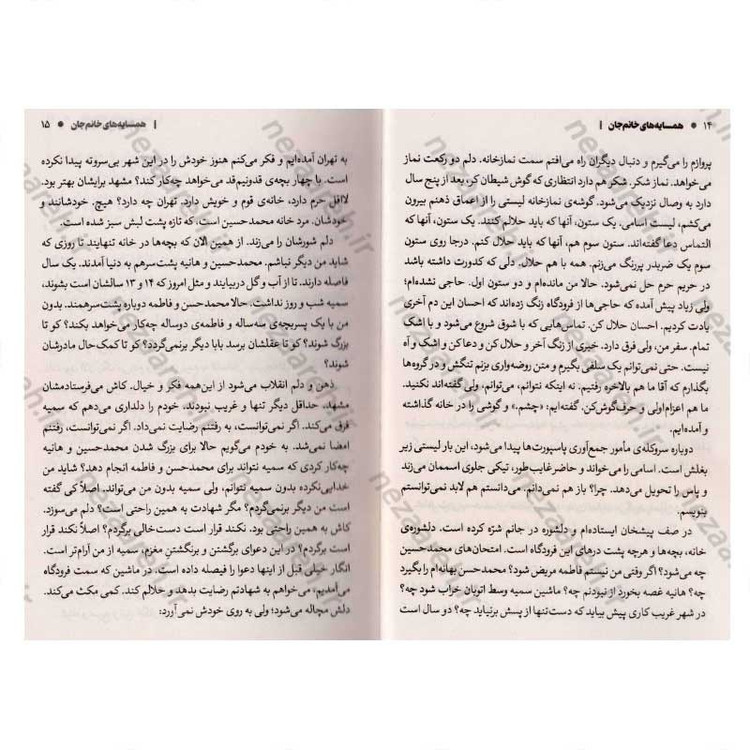 ۱۴ ● همسایه‌های خانم‌جان |
پروازم را می‌گیرم و دنبال دیگران راه می‌افتم سمت نمازخانه. دلم دو رکعت نماز
می‌خواهد. نماز شکر. شکر هم دارد انتظاری که گوش شیطان کر، بعد از پنج سال
دارد به وصال نزدیک می‌شود. گوشه‌ی نمازخانه لیستی را از اعماق ذهنم بیرون
می‌کشم، لیست اسامی. یک ستون، آنها که باید حلالم کنند. یک ستون، آنها که
التماس دعا گفته‌اند. ستون سوم هم، آنها که باید حلال کنم. درجا روی ستون
سوم یک ضربدر پررنگ می‌زنم. همه با هم حلال. دلی که کدورت داشته باشد
در حریم حرم حل نمی‌شود. حالا من مانده‌ام و دو ستون اول. حاجی نشده‌ام؛
ولی زیاد پیش آمده که حاجی‌ها از فرودگاه زنگ زده‌اند که احسان این دم آخری
یادت کردیم. احسان حلال کن. تماس‌هایی که با شوق شروع می‌شود و با اشک
تمام. سفر من، ولی فرق دارد. خبری از زنگ آخر و حلال کن و دعا کن و اشک و آه
نیست. حتی نمی‌توانم یک سلفی بگیرم و متن روضه‌واری بزنم تنگش و در گروه‌ها
بگذارم که آقا ما هم بالاخره رفتیم. نه اینکه نتوانم، می‌توانم، ولی گفته‌اند نکنید.
ما هم اعزام‌اولی و حرف‌گوش‌کن. گفته‌ایم: «چشم.» و گوشی را در خانه گذاشته
و آمده‌ایم.
دوباره سروکله‌ی مأمور جمع‌آوری پاسپورت‌ها پیدا می‌شود، این بار لیستی زیر
بغلش است. اسامی را می‌خواند و حاضرغایب‌طور، تیکی جلوی اسممان می‌زند
و پاس را تحویل می‌دهد. چرا؟ باز هم نمی‌دانم. می‌دانستم هم لابد نمی‌توانستم
بنویسم.
در صف پیشخان ایستاده‌ام و دلشوره در جانم شره کرده است. دلشوره‌ی
خانه، بچه‌ها و هرچه پشت درهای این فرودگاه است. امتحان‌های محمدحسین
چه می‌شود؟ اگر وقتی من نیستم فاطمه مریض شود؟ محمدحسن بهانه‌ام را بگیرد
چه؟ هانیه غصه بخورد از نبودنم چه؟ ماشین سمیه وسط اتوبان خراب شود چه؟
در شهر غریب کاری پیش بیاید که دست‌تنها از پسش برنیاید چه؟ دو سال است
| همسایه‌های خانم‌جان ● ۱۵
به تهران آمده‌ایم و فکر می‌کنم هنوز خودش را در این شهر بی‌سروته پیدا نکرده
است. با چهار بچه‌ی قدونیم‌قد می‌خواهد چه‌کار کند؟ مشهد برایشان بهتر بود.
لااقل حرم دارد، خانه‌ی قوم و خویش دارد. تهران چه دارد؟ هیچ. خودشانند و
خودشان. مرد خانه محمدحسین است، که تازه پشت لبش سبز شده است.
دلم شورشان را می‌زند. از همین الان که بچه‌ها در خانه تنهایند تا روزی که
شاید من دیگر نباشم. محمدحسین و هانیه پشت‌سرهم به دنیا آمدند. یک سال
فاصله دارند. تا از آب و گل دربیایند و مثل امروز که ۱۴ و ۱۳ سالشان است بشوند،
سمیه شب و روز نداشت. حالا محمدحسن و فاطمه دوباره پشت‌سرهمند. بدون
من با یک پسربچه‌ی سه‌ساله و فاطمه‌ی دوساله چه‌کار می‌خواهد بکند؟ کو تا
بزرگ شوند؟ کو تا عقلشان برسد بابا دیگر برنمی‌گردد؟ کو تا کمک‌حال مادرشان
شوند؟
ذهن و دلم انقلاب می‌شود از این‌همه فکر و خیال. کاش می‌فرستادمشان
مشهد. حداقل دیگر تنها و غریب نبودند. خودم را دلداری می‌دهم که سمیه
فرق می‌کند. اگر نمی‌توانست، به رفتنم رضایت نمی‌داد. اگر نمی‌توانست، رفتنم
امضا نمی‌شد. به خودم می‌گویم حالا برای بزرگ شدن محمدحسین و هانیه
چه‌کار کردی که سمیه نتواند برای محمدحسن و فاطمه انجام دهد؟ شاید من
خدایی‌نکرده بدون سمیه نتوانم، ولی سمیه بدون من می‌تواند. اصلاً کی گفته
است من دیگر برنمی‌گردم؟ مگر شهادت به همین راحتی است؟ دلم می‌سوزد.
کاش به همین راحتی بود. نکند قرار است دست‌خالی برگردم؟ اصلاً نکند قرار
است برگردم؟ در این دعوای برگشتن و برنگشتنِ مغزم، سمیه از من آرام‌تر است.
انگار خیلی قبل از اینها دعوا را فیصله داده است. در ماشین که سمت فرودگاه
می‌آمدیم، می‌خواهم به شهادتم رضایت بدهد و حلالم کند. کمی مکث می‌کند.
دلش مچاله می‌شود؛ ولی به روی خودش نمی‌آورد:
nezaareh.ir